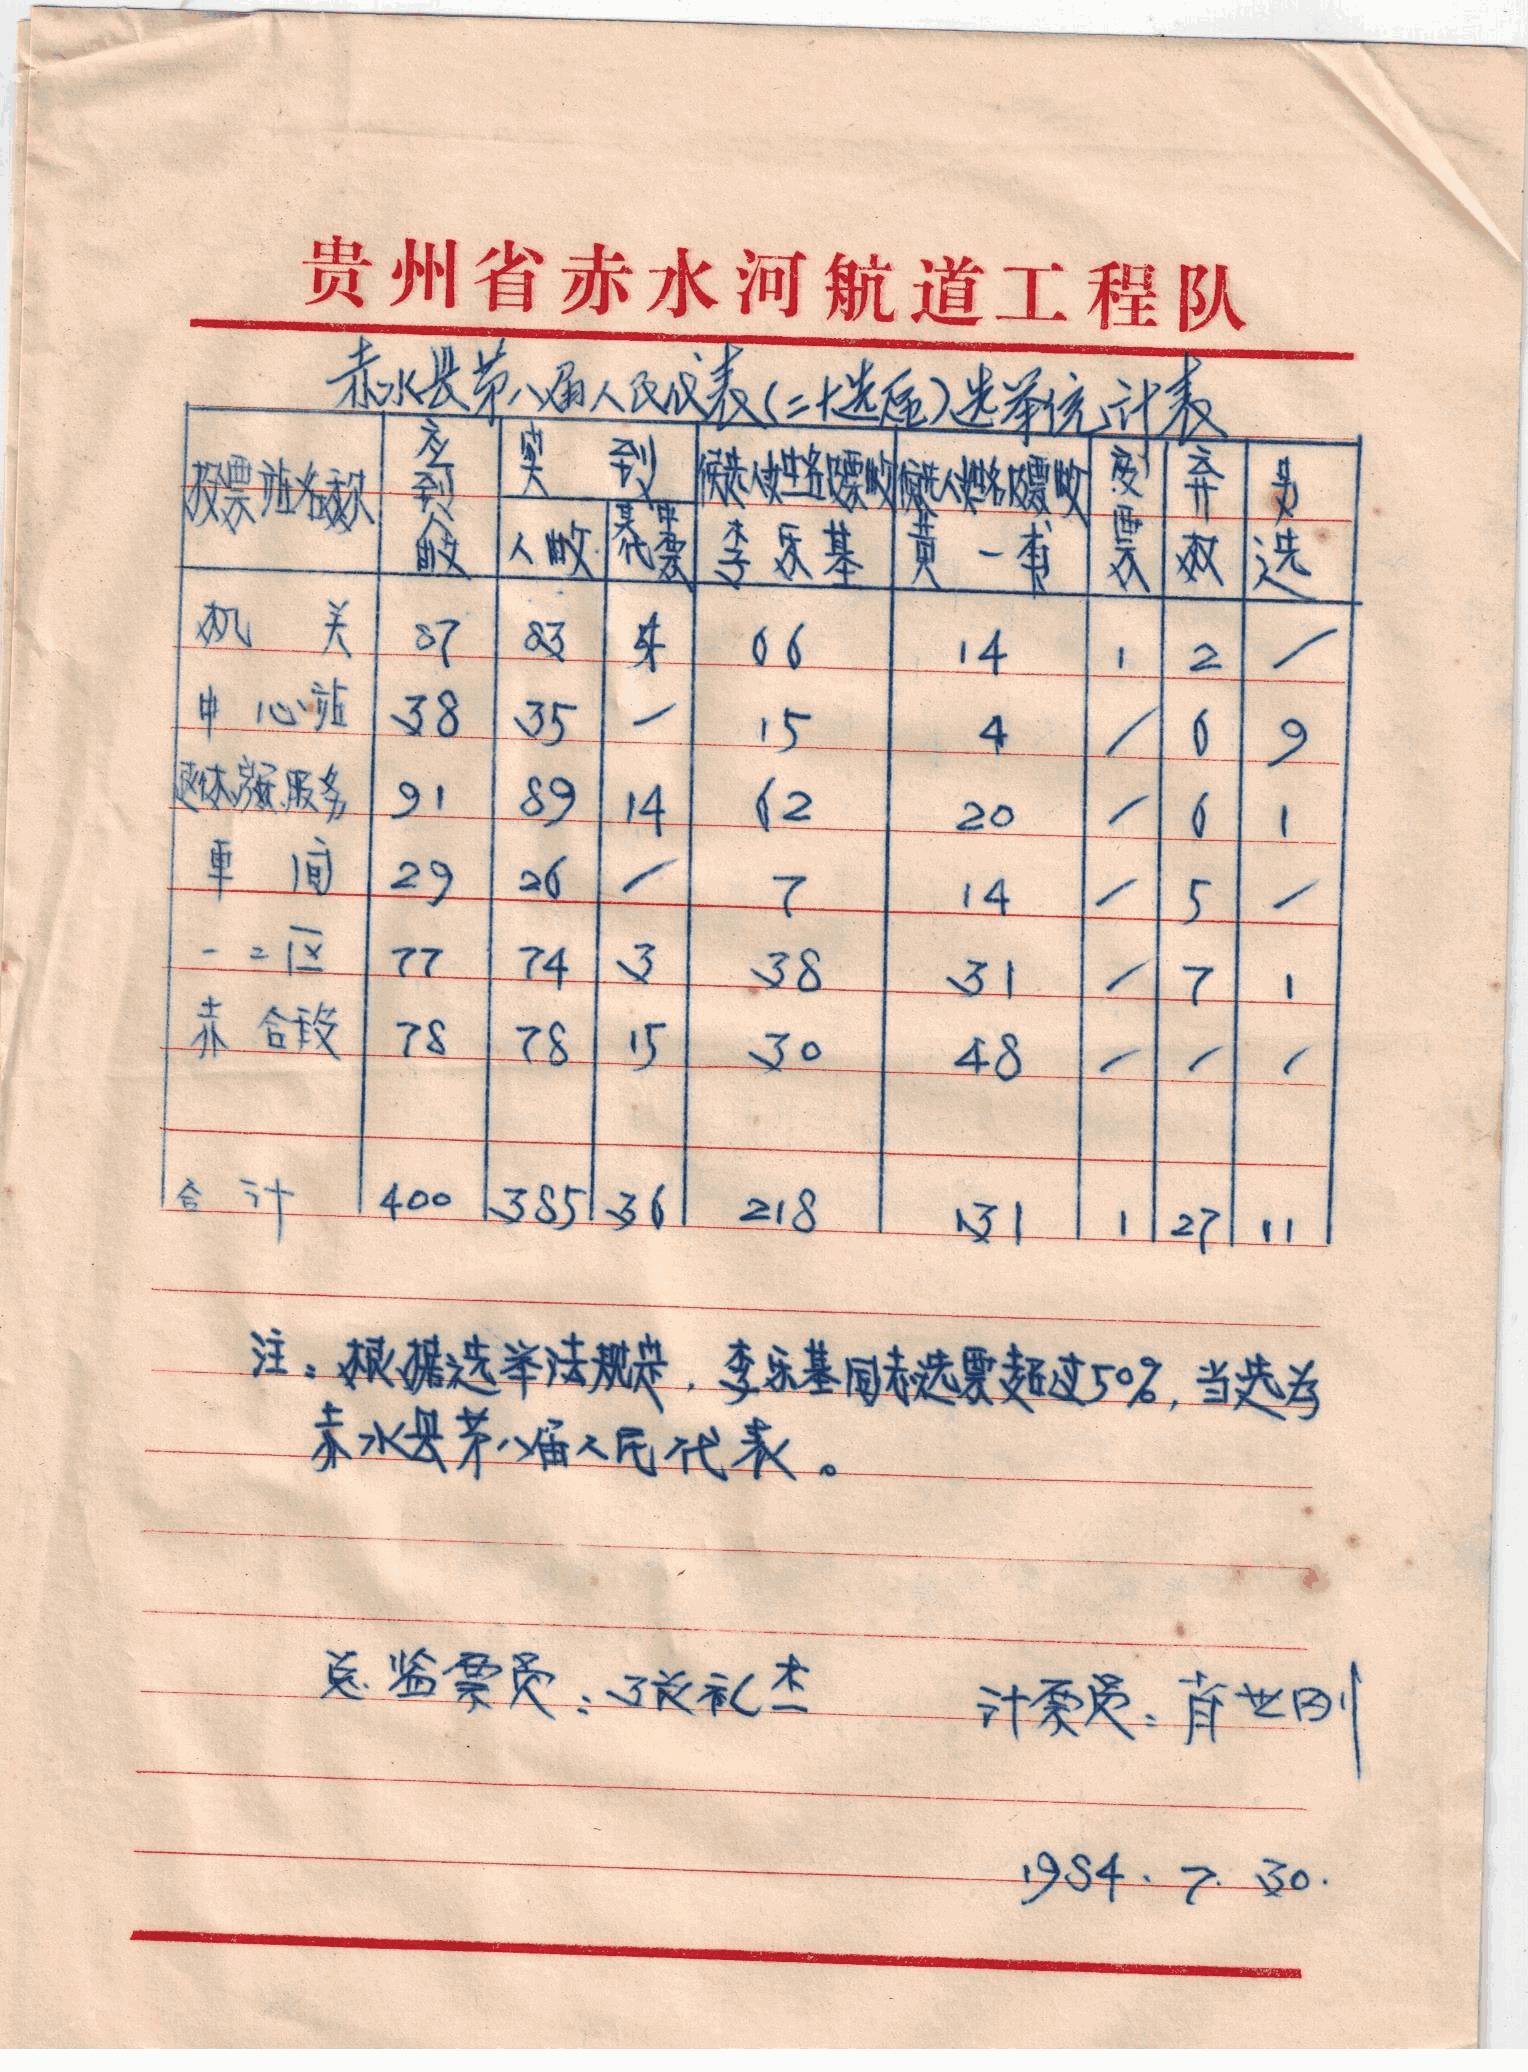 贵州省赤水河航道工程队
赤水县第八届人民代表(二十选区)选举统计表
投票站名称 应到人数 实到 候选人姓名及票数 候选人姓名及票数 废票 弃权 另选
人数 其中代票 李乐基 黄一书
机关 87 83 4 66 14 1 2 /
中心站 38 35 / 15 4 / 6 9
退休 服务 91 89 14 62 20 / 6 1
车间 29 26 / 7 14 / 5 /
一二区 77 74 3 38 31 / 7 1
赤合段 78 78 15 30 48 / / /
合计 400 385 36 218 131 1 27 11
注:根据选举法规定,李乐基同志选票超过50%,当选为
赤水县第八届人民代表。
总监票员:张礼杰 计票员:肖世刚
1984.7.30.